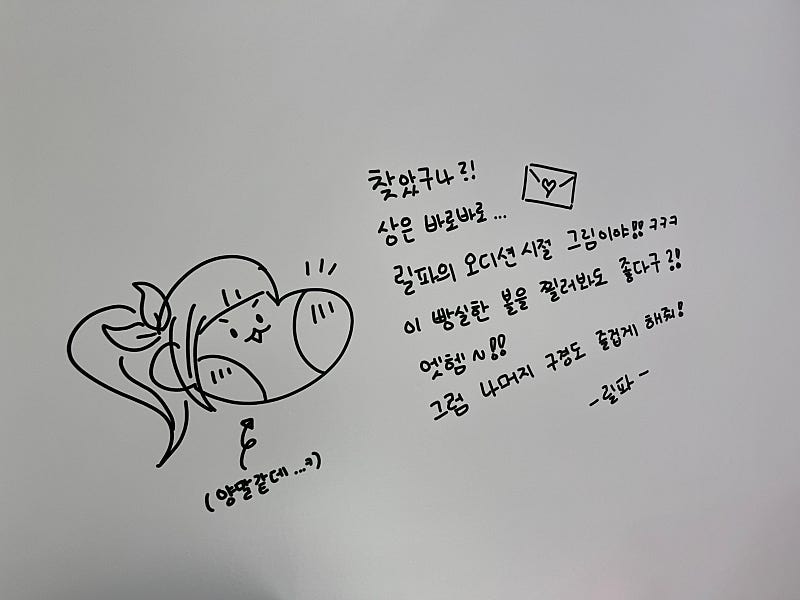 찾았구나?!
상은 바로바로...
릴파의 오디션시절 그림이야!! ㅋㅋㅋ
이 빵실한 볼을 찔러봐도 좋다구?!
엣헴~!!
그럼 나머지 구경도 즐겁게 해줘!
-릴파-
(양말같데...ㅋ)